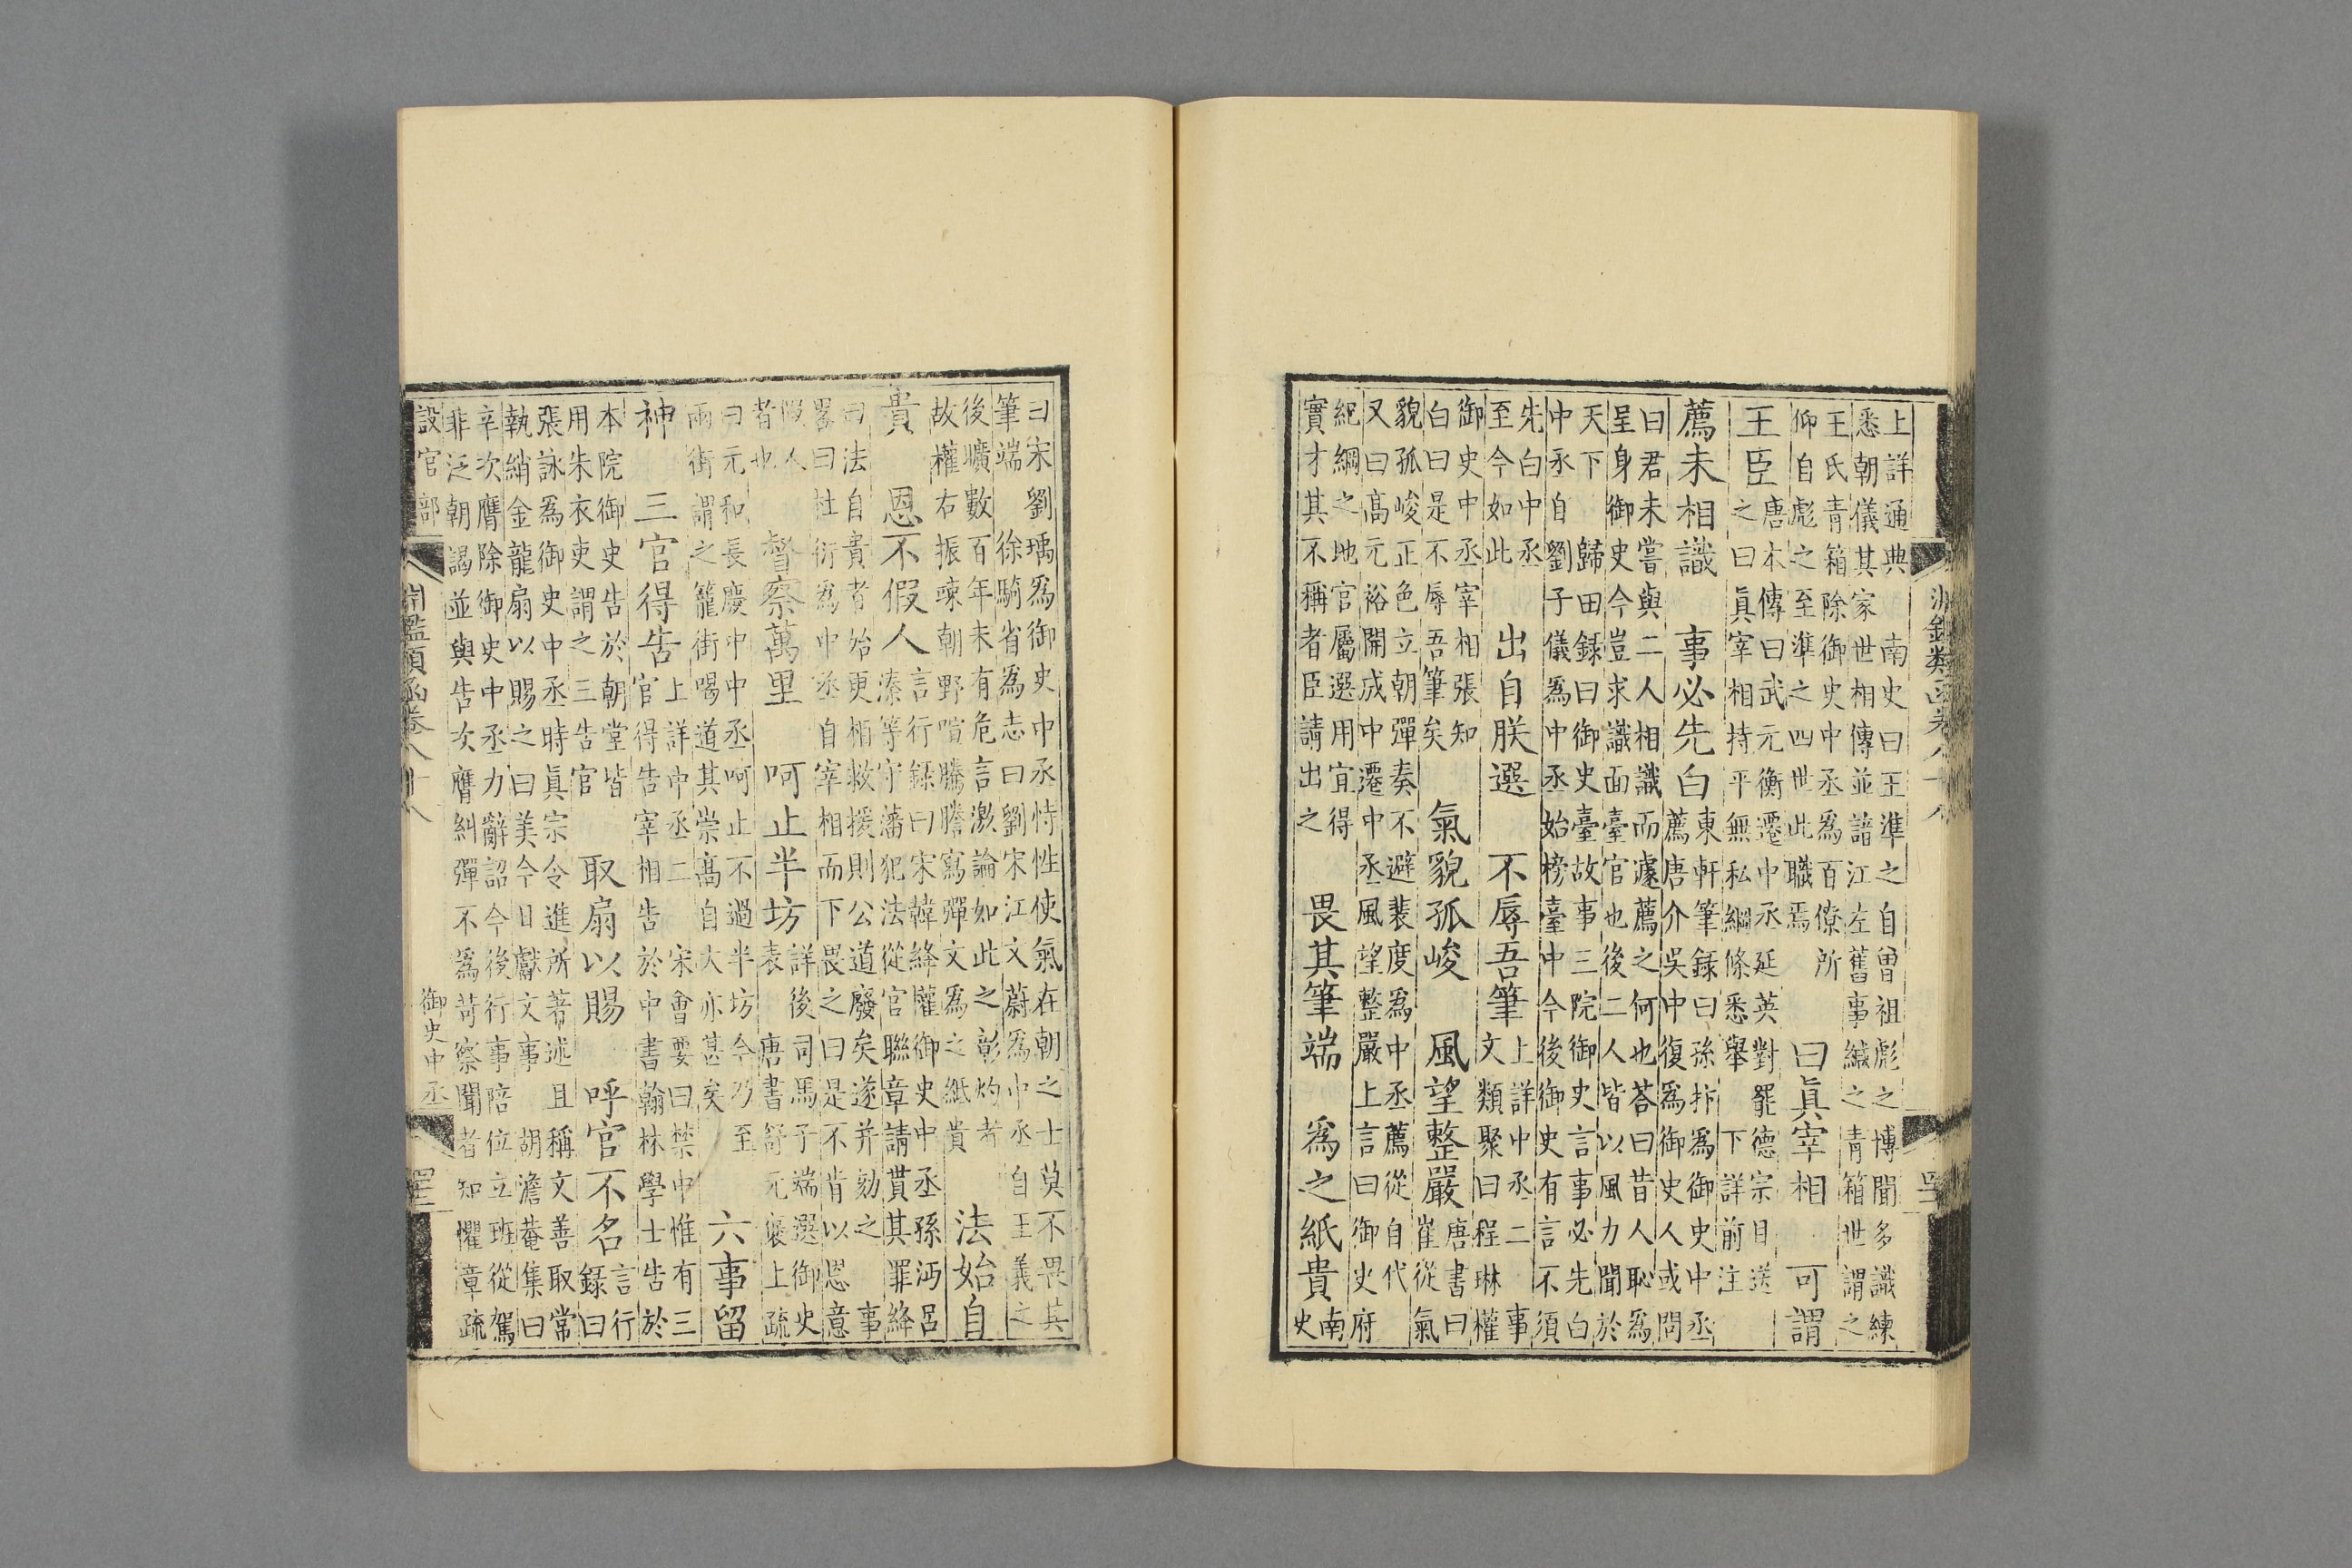 上詳通典　南史曰王準之自曾祖彪之博聞多識練
悉朝儀其家世相傳並諳江左舊事緘之青箱世謂之
王氏青箱除御史中丞爲百僚所
仰自彪之至準之四世此職焉
曰眞宰相　可謂
王臣
唐本傳曰武元衡遷中丞延英對罷德宗目送
之曰眞宰相持平無私綱條悉舉　下詳前注
薦未相識　事必先白
東軒筆錄曰孫抃爲御史中丞
薦唐介吳中復爲御史人或問
曰君未嘗與二人相識而遽薦之何也荅曰昔人恥爲
呈身御史今豈求識面臺官也後二人皆以風力聞於
天下　歸田錄曰御史臺故事三院御史言事必先白
中丞自劉子儀爲中丞始榜臺中今後御史有言不須
先白中丞
至今如此
出自朕選　不辱吾筆
上詳中丞二　事
文類聚曰程琳權
御史中丞宰相張知
白曰是不辱吾筆矣
氣貌孤峻　風望整嚴
唐書曰
崔從氣
貌孤峻正色立朝彈奏不避裴度爲中丞薦從自代
又曰高元裕開成中遷中丞風望整嚴上言曰御史府
紀綱之地官屬選用宜得
實才其不稱者臣請出之
畏其筆端　爲之紙貴
南
史
曰宋劉瑀爲御史中丞恃性使氣在朝之士莫不畏其
筆端　徐騎省爲志曰劉宋江文蔚爲中丞自王義之
後曠數百年未有危言激論如此之彰灼者
故權右振竦朝野喧騰謄寫彈文爲之紙貴
法始自
貴　恩不假人
言行錄曰宋韓絳權御史中丞孫沔呂
溱等守藩犯法從官聯章請貰其罪絳
曰法自貴者始更相救援則公道廢矣遂并劾之　事
畧曰杜衍爲中丞自宰相而下畏之曰是不肯以恩意
假人
者也
督察萬里　呵止半坊
詳後司馬子端選御史
表　唐書舒元褒上疏
曰元和長慶中中丞呵止不過半坊今乃至
兩街謂之籠街喝道其崇高自大亦甚矣
六事留
神　三官得告
上詳中丞二　宋會要曰禁中惟有三
官得告宰相告於中書翰林學士告於
本院御史告於朝堂皆
用朱衣吏謂之三告官
取扇以賜　呼官不名
言行
錄曰
張詠爲御史中丞時眞宗令進所著述且稱文善取常
執綃金龍扇以賜之曰美今日獻文事　胡澹菴集曰
辛次膺除御史中丞力辭詔今後行事陪位立班從駕
非泛朝謁並與告次膺糾彈不爲苛察聞者知懼章疏
設官部
淵鑑類函卷八十八
御史中丞